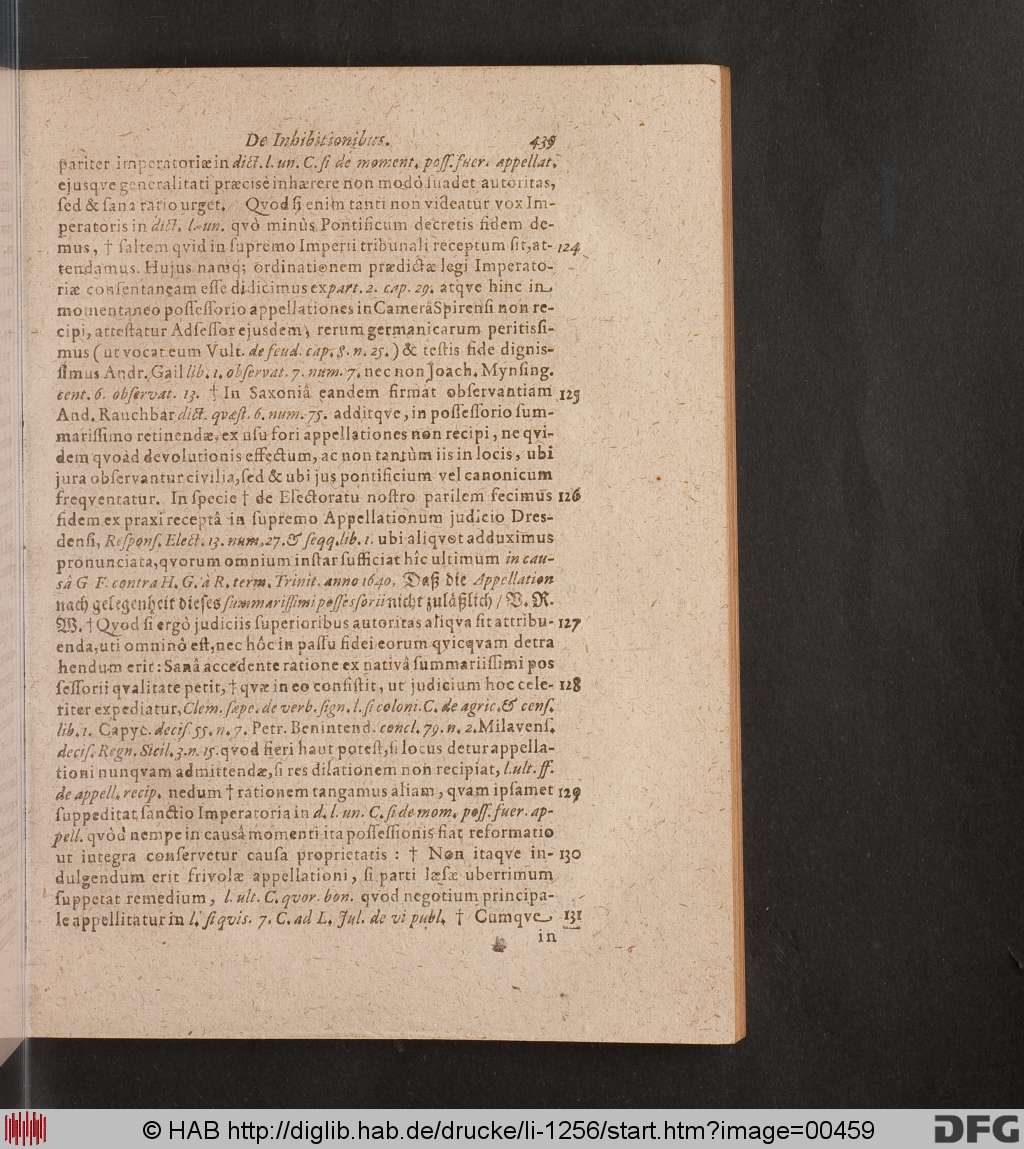 De Inhibitionibus. 439
pariter imperatoriæ in dict. l. un. C. si de moment. poss. fuer. appellat.
ejusqve generalitati præcisè inhærere non modò suadet autoritas,
sed & sana ratio urget. Qvod si enim tanti non videatur vox Im-
peratoris in dict. l. un. qvò minùs Pontificum decretis fidem de-
mus, † saltem qvid in supremo Imperii tribunali receptum sit, at- 124
tendamus. Hujus namq; ordinationem prædictæ legi Imperato-
riæ consentaneam esse didicimus ex part. 2. cap. 29. atqve hinc in
momentaneo possessorio appellationes in Camerâ Spirensi non re-
cipi, attestatur Adsessor ejusdem, rerum germanicarum peritissi-
mus (ut vocat eum Vult. de feud. cap. 8. n. 25.) & testis fide dignis-
simus Andr. Gail lib. 1. observat. 7. num. 7. nec non Joach. Mynsing.
cent. 6. observat. 13. † In Saxoniâ eandem firmat observantiam 125
And. Rauchbar dict. qvæst. 6. num. 75. additqve, in possessorio sum-
marissimo retinendæ, ex usu fori appellationes non recipi, ne qvi-
dem qvoàd devolutionis effectum, ac non tantùm iis in locis, ubi
jura observantur civilia, sed & ubi jus pontificium vel canonicum
freqventatur. In specie † de Electoratu nostro parilem fecimus 126
fidem ex praxi receptâ in supremo Appellationum judicio Dres-
densi, Respons. Elect. 13. num. 27. & seqq. lib. 1. ubi aliqvot adduximus
pronunciata, qvorum omnium instar sufficiat hîc ultimum in cau-
sâ G F. contra H. G. à R. term. Trinit. anno 1640. Daß die Appellation
nach gelegenheit dieses summarissimi possessorii nicht zuläßlich / V. R.
W. † Qvod si ergò judiciis superioribus autoritas aliqva sit attribu- 127
enda, uti omninò est, nec hôc in passu fidei eorum qvicqvam detra
hendum erit: Sanà accedente ratione ex nativâ summariissimi pos
sessorii qvalitate petit, † qvæ in eo consistit, ut judicium hoc cele- 128
riter expediatur, Clem. sæpe. de verb. sign. l. si coloni. C. de agric. & cens.
lib. 1. Capyc. decis. 55. n. 7. Petr. Benintend. concl. 79. n. 2. Milavens.
decis. Regn. Sicil. 3. n. 15. qvod fieri haut potest, si locus detur appella-
tioni nunqvam admittendæ, si res dilationem non recipiat, l. ult. ff.
de appell. recip. nedum † rationem tangamus aliam, qvam ipsamet 129
suppeditat sanctio Imperatoria in d. l. un. C. si de mom. poss. fuer. ap-
pell. qvòd nempe in causâ momenti ita possessionis fiat reformatio
ut integra conservetur causa proprietatis : † Non itaqve in- 130
dulgendum erit frivolæ appellationi, si parti læsæ uberrimum
suppetat remedium, l. ult. C. qvor. bon. qvod negotium principa-
le appellitatur in l. si qvis. 7. C. ad L. Jul. de vi publ. † Cumqve 131
in
© HAB http://diglib.hab.de/drucke/li-1256/start.htm?image=00459
DFG